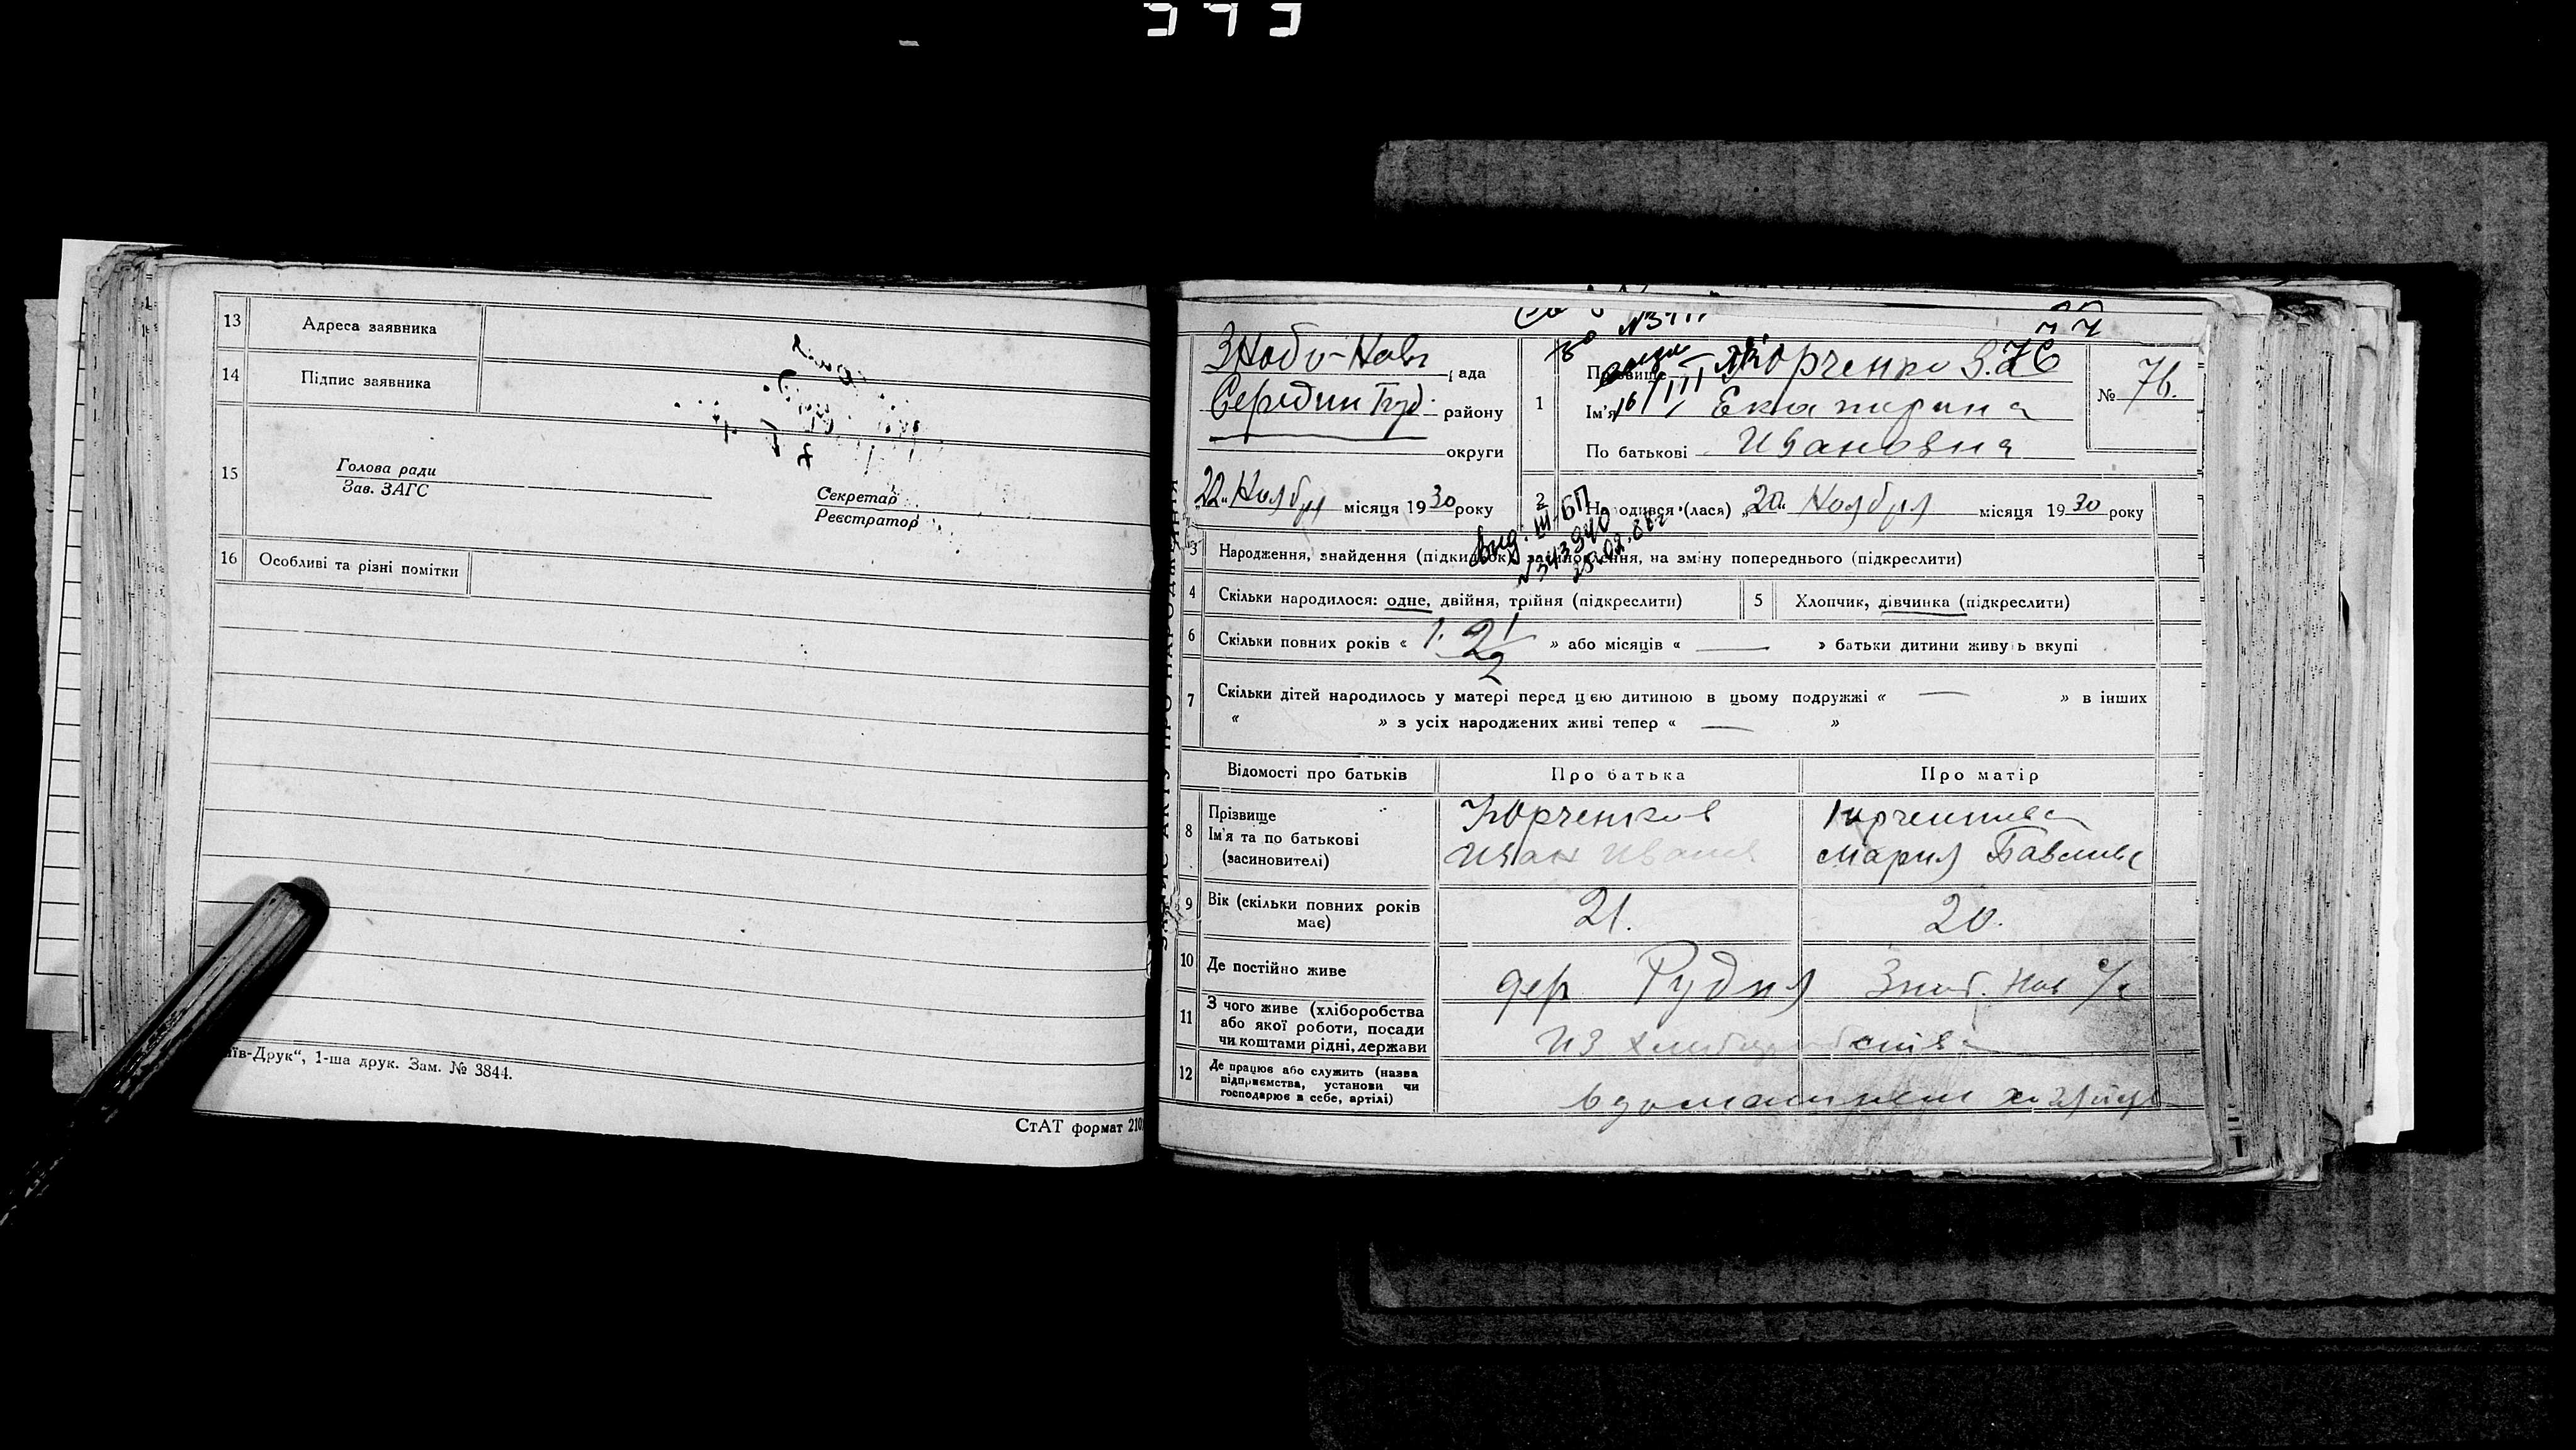 13 Адреса заявника
14 Підпис заявника
15 Голова ради
Зав. ЗАГС
Секретар
Реєстратор
16 Особливі та різні помітки
їв-Друк“, 1-ша друк. Зам. № 3844.
СтАТ формат 210
Зноб-Нов ада
Середин Буд. району
округи
„22“ Ноября місяця 1930 року
1 Прізвище Юрченко
Ім'я Екатирина
По батькові Ивановна
№ 76.
16/III
2 Народився (лася) „20“ Ноября місяця 1930 року
Вид. III-БП
3 Народження, знайдення (підкидьок) на зміну попереднього (підкреслити)
4 Скільки народилося: одне, двійня, трійня (підкреслити)
5 Хлопчик, дівчинка (підкреслити)
6 Скільки повних років « 1. 2 1/2 » або місяців « — » батьки дитини живуь вкупі
7 Скільки дітей народилось у матері перед цією дитиною в цьому подружжі « — » в інших
« » з усіх народжених живі тепер « — »
Відомості про батьків Про батька Про матір
8 Прізвище
Ім'я та по батькові
(засиновителі)
Юрченков
Иван Иванов
Мария Павлов
9 Вік (скільки повних років має) 21. 20.
10 Де постійно живе дер Рудня Зноб. Нов с/с
11 З чого живе (хліборобства
або якої роботи, посади
чи коштами рідні, держави
из
12 Де працює або служить (назва
підприємства, установи чи
господарює в себе, артілі)
в домашнем